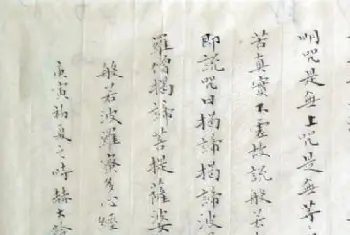 明咒是無上咒是無等
苦真實不虛故說般若
即說咒曰揭諦揭諦波
羅僧揭諦菩提薩婆
般若波羅蜜多心經
庚寅初夏之時赫